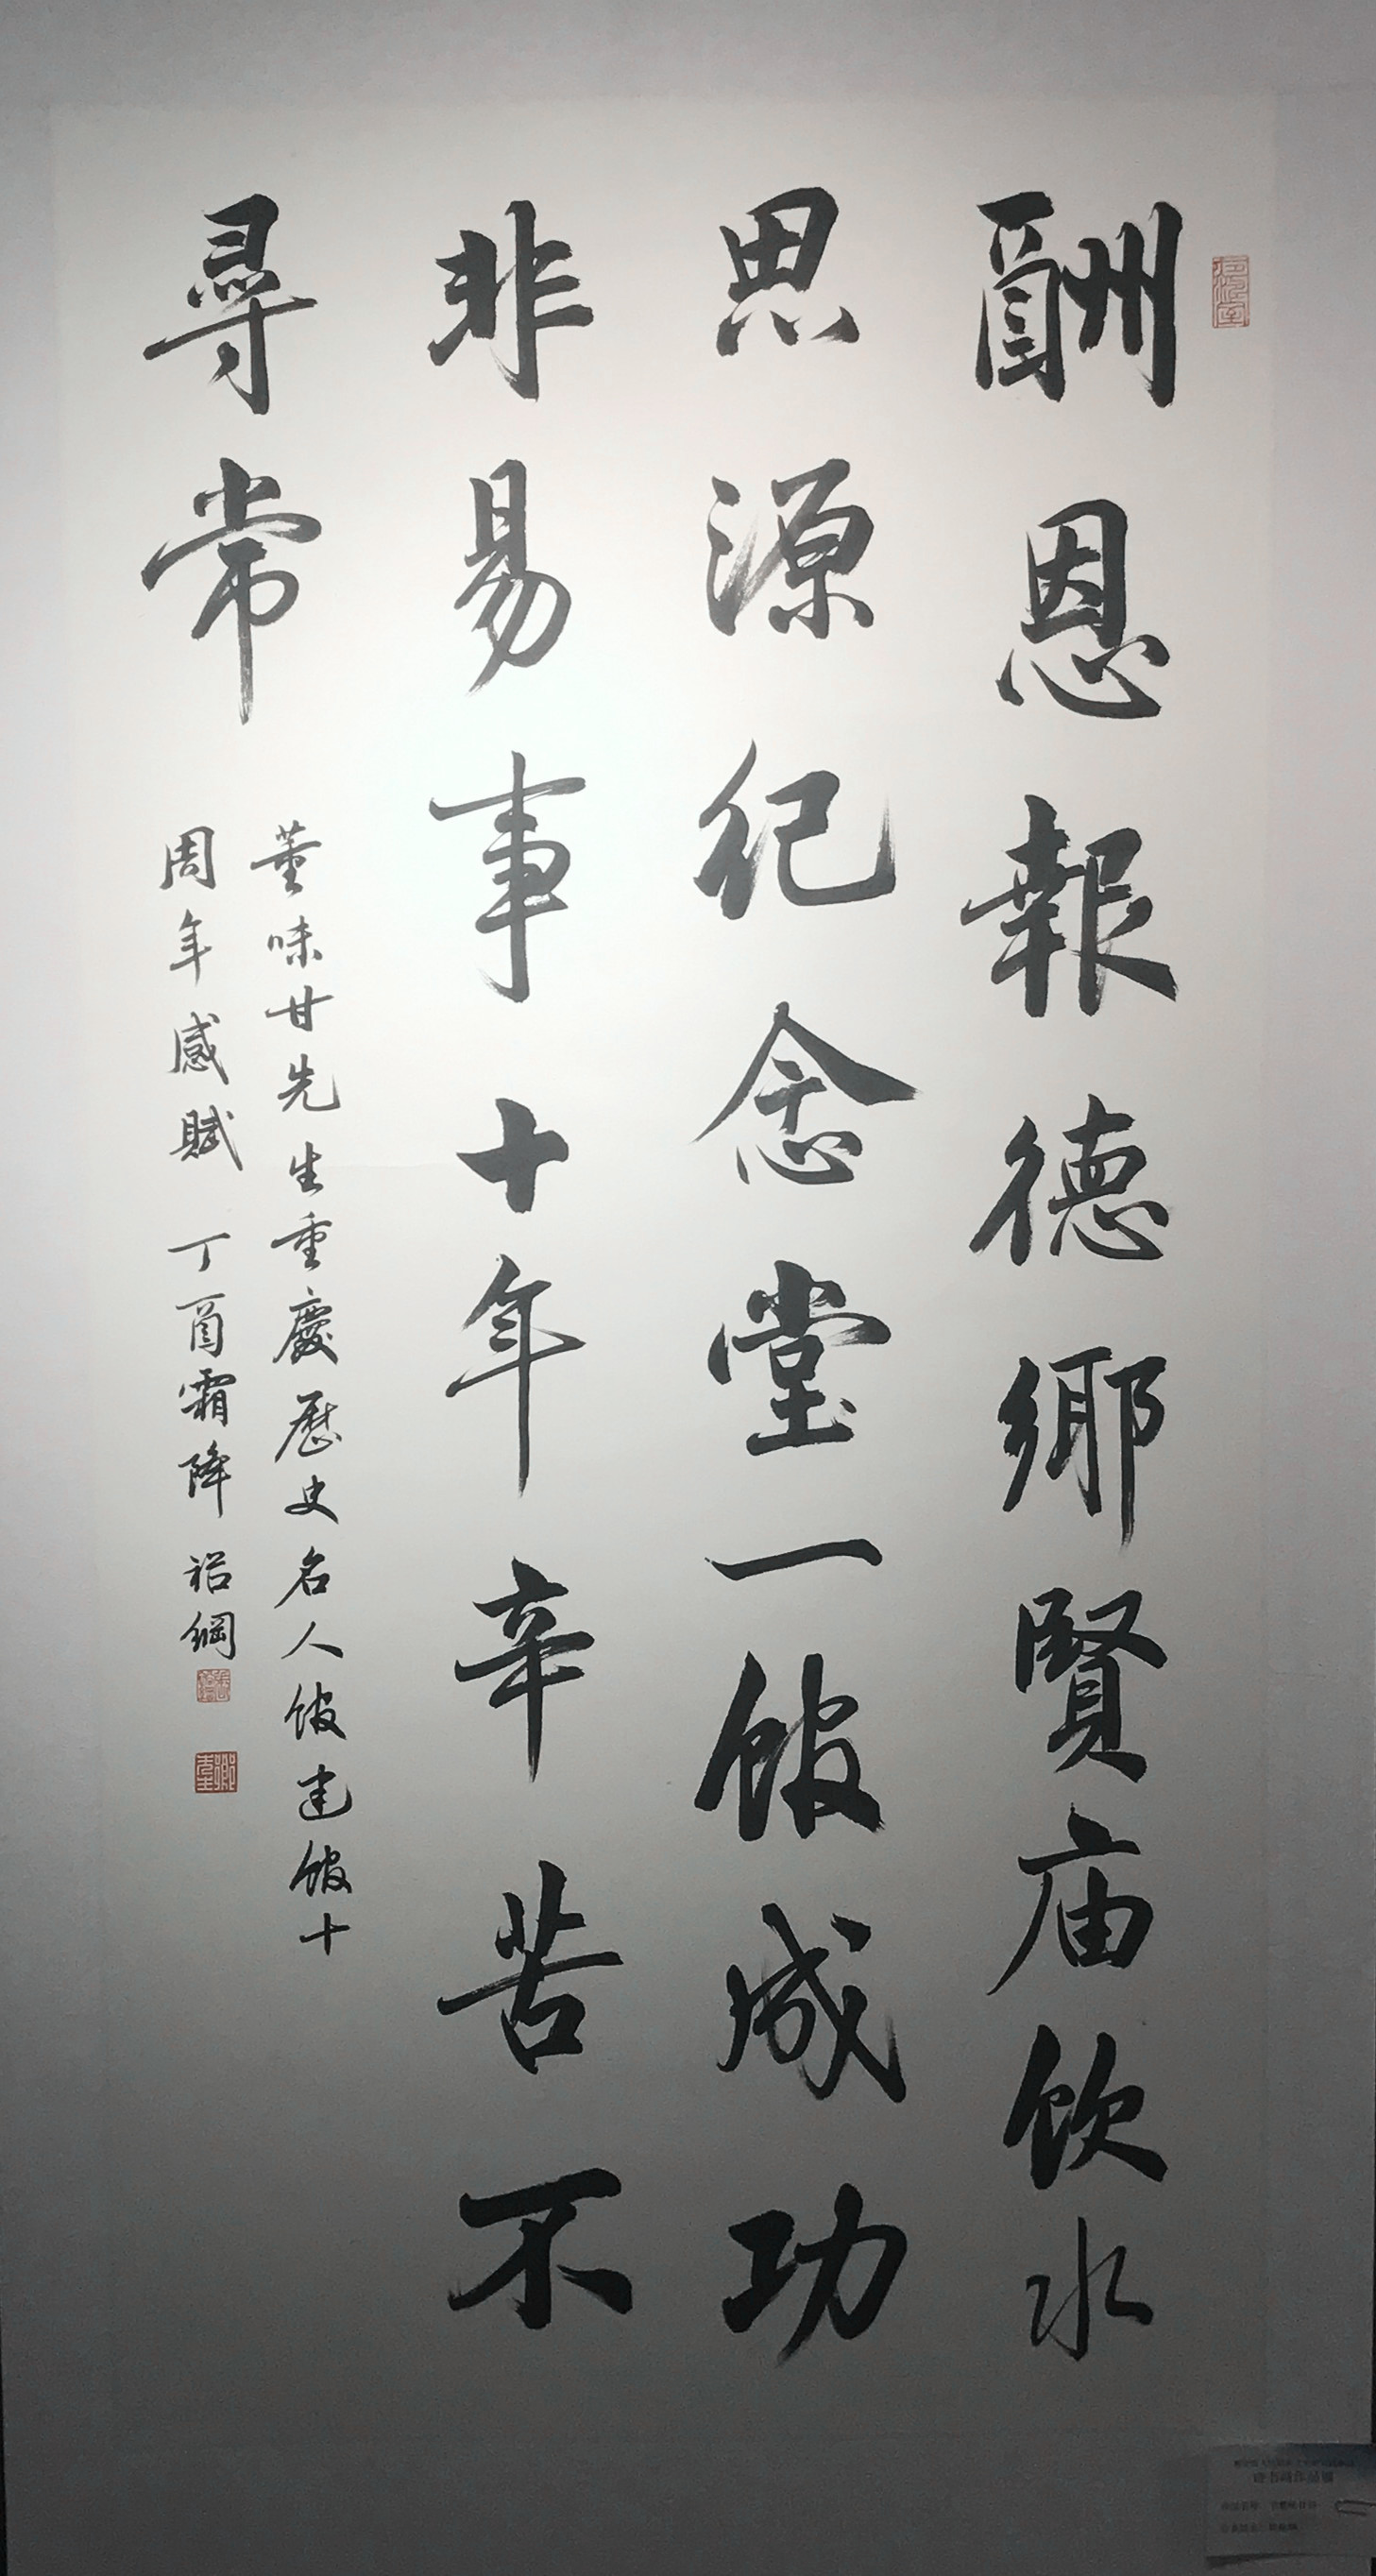 酬恩報德鄉賢庙飲水
思源纪念堂一館成功
非易事十年辛苦不
尋常
董味甘先生重慶歷史名人館建館十
周年感賦 丁酉霜降 祒綱